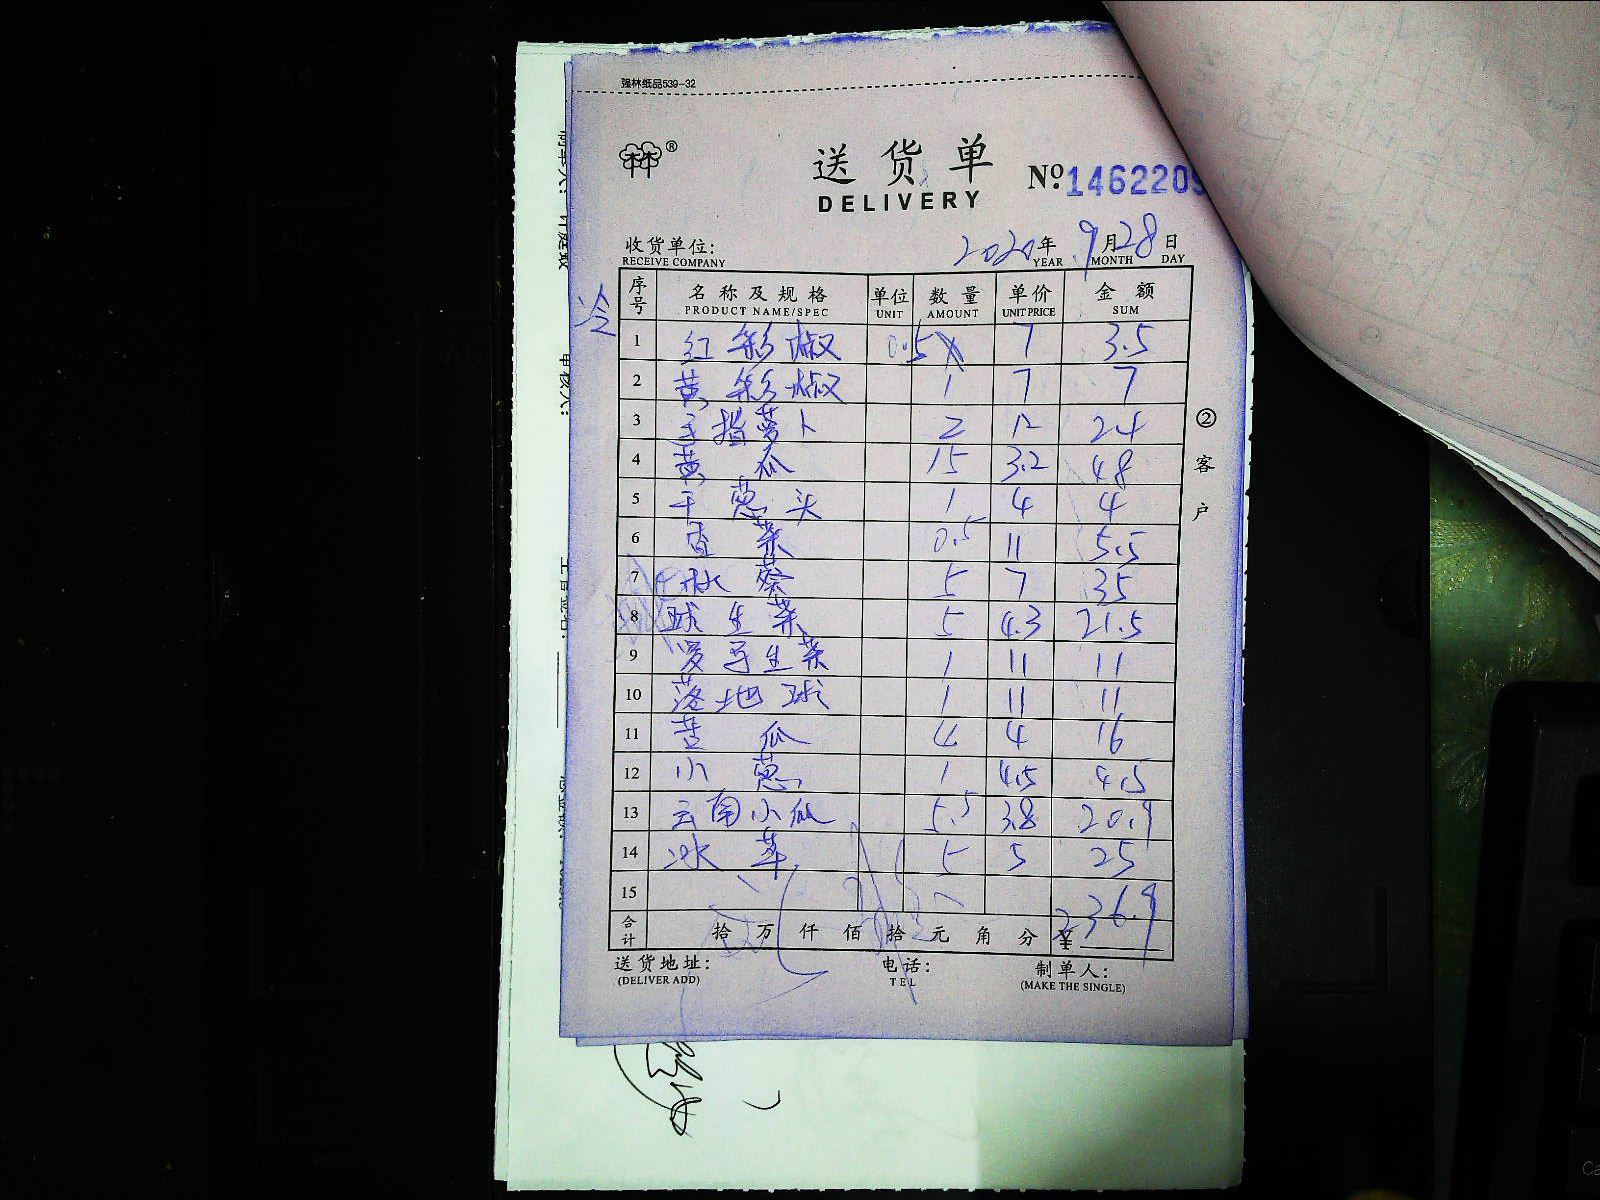 强林纸品539-32
林林® 送货单 Nº 1462209
DELIVERY
收货单位: 2020年 9月28日
RECEIVE COMPANY YEAR MONTH DAY
冷
序号 名称及规格 单位 数量 单价 金额
PRODUCT NAME/SPEC UNIT AMOUNT UNIT PRICE SUM
1 红彩椒 0.5 7 3.5
2 黄彩椒 1 7 7
3 手指萝卜 2 12 24
4 黄瓜 15 3.2 48
5 干葱头 1 4 4
6 香菜 0.5 11 5.5
7 5 7 35
8 球生菜 5 4.3 21.5
9 罗马生菜 1 11 11
10 落地球 1 11 11
11 苦瓜 4 4 16
12 小葱 1 4.5 4.5
13 云南小瓜 5.5 3.8 20.9
14 冰草 5 5 25
15
合计 拾 万 仟 佰 拾 元 角 分 ¥ 236.9
送货地址: 电话: 制单人:
(DELIVER ADD) TEL (MAKE THE SINGLE)
② 客户